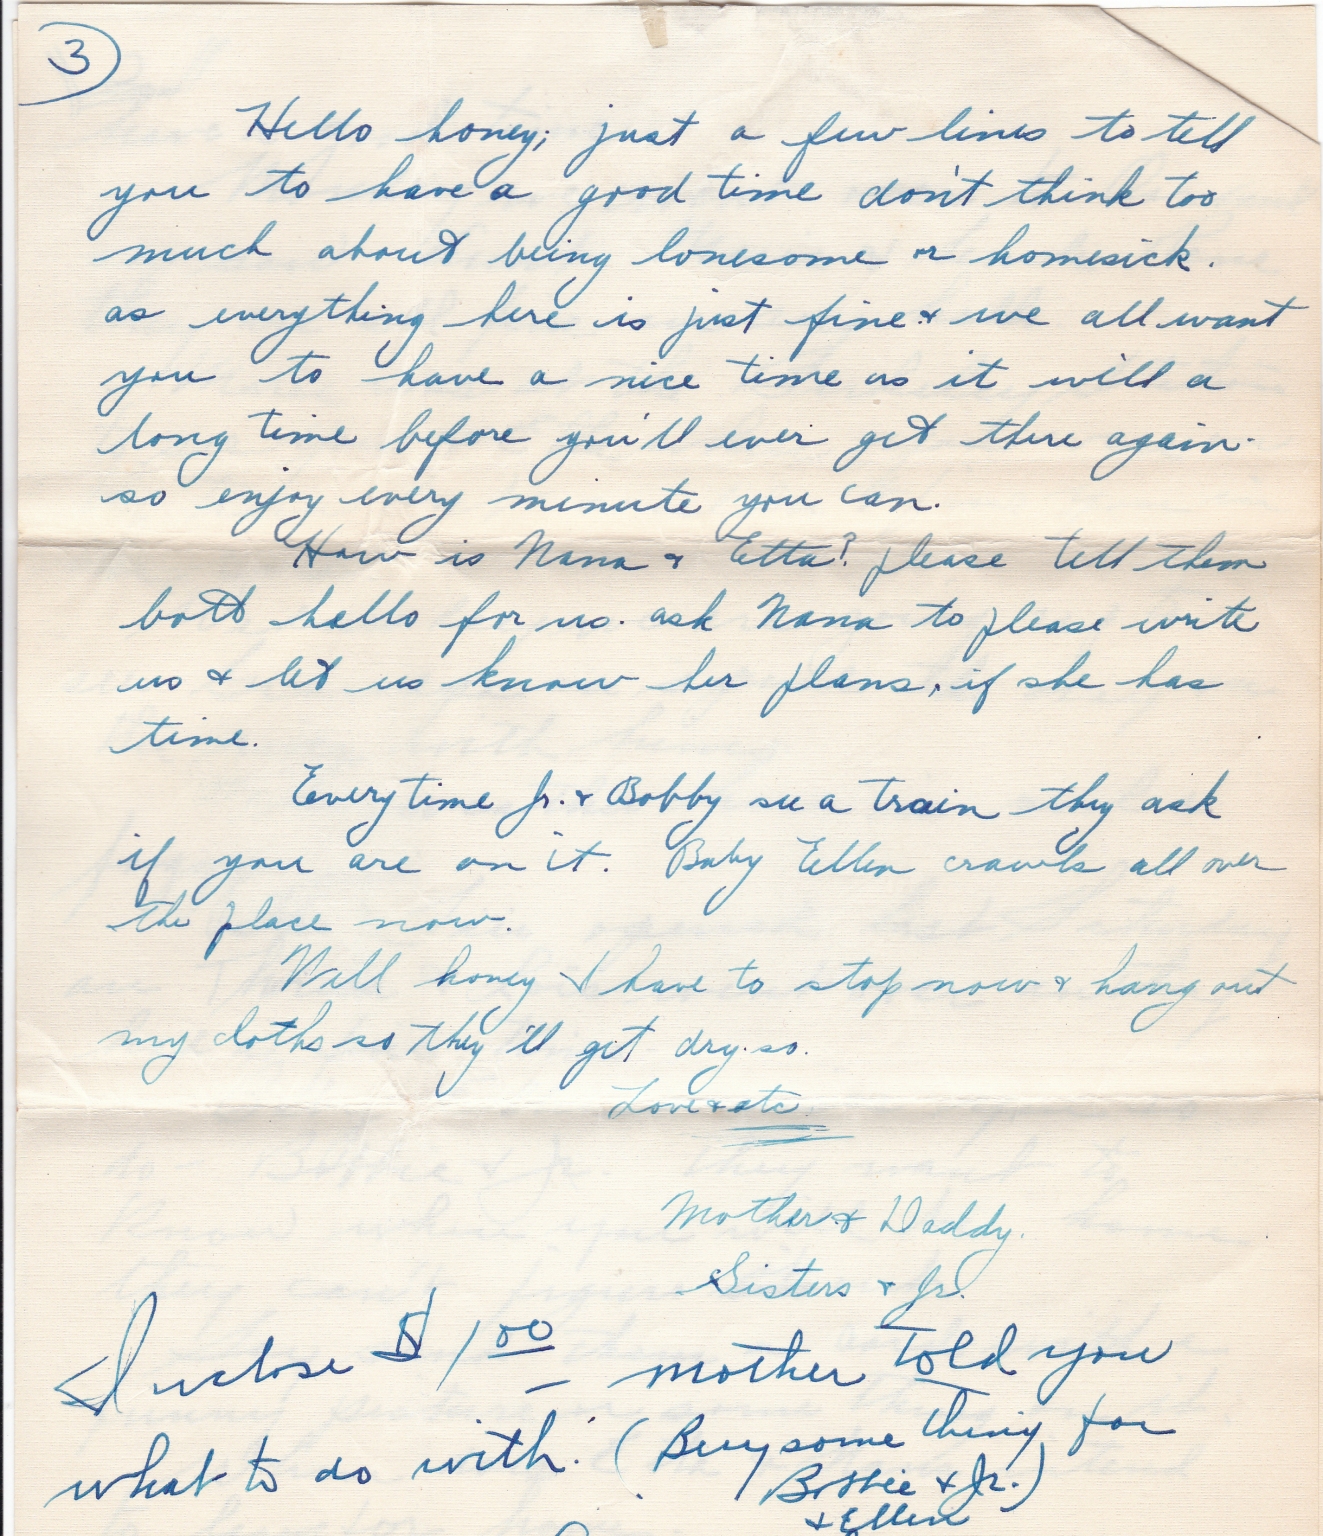 3
Hello honey; just a few lines to tell
you to have a good time don't think too
much about being lonesome or homesick.
as everything here is just fine & we all want
you to have a nice time as it will a
long time before you'll ever get there again.
so enjoy every minute you can.
How is Nana & Etta? please tell them
both hello for us. ask Nana to please write
us & let us know her plans, if she has
time.
Everytime Jr. & Bobby see a train they ask
if you are on it. Baby Ellen crawls all over
the place now.
Well honey I have to stop now & hang out
my cloths so they'll get dry. so.
Love & etc
Mother & Daddy.
Sisters & Jr.
Inclose $1.00 — mother told you
what to do with. (Buy some thing for
Bobbie & Jr.)
& Ellen